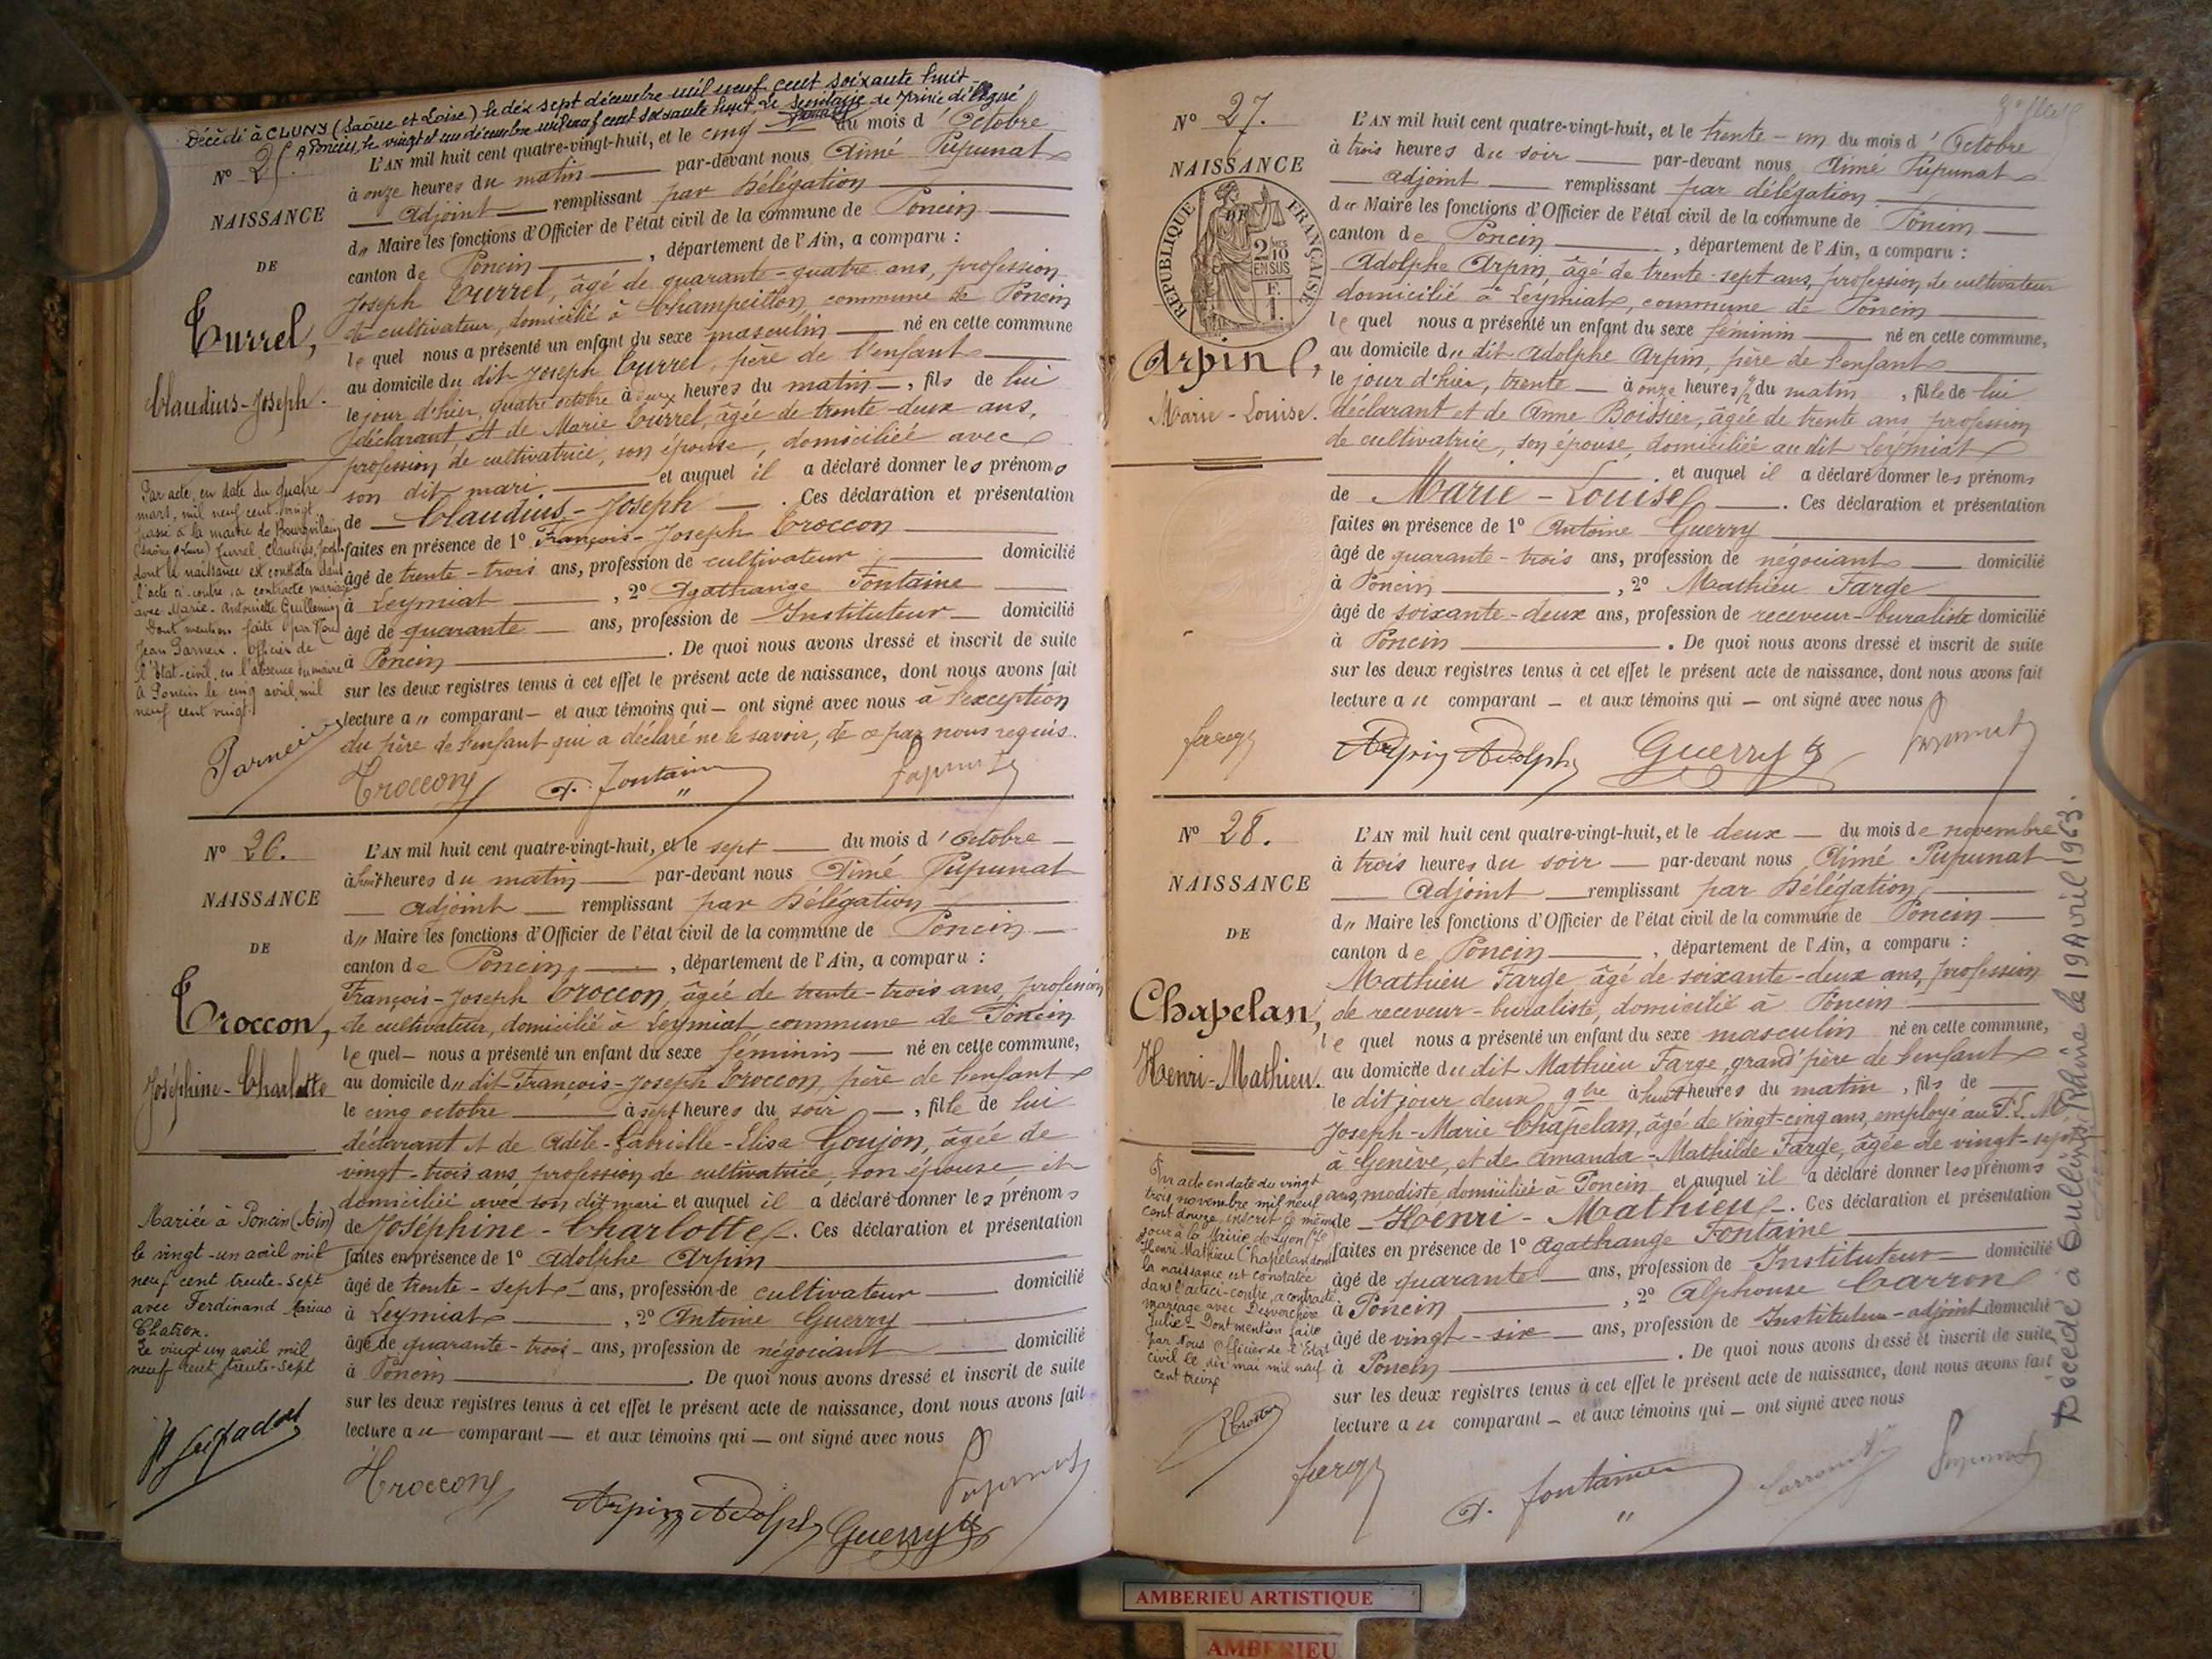 Décédé à CLUNY (Saône et Loire) le dix sept décembre mil neuf cent soixante huit
A Poncin, le vingt et un décembre mil neuf cent soixante huit, le de Mairie délégué
N° 25.
NAISSANCE
DE
Turrel,
Claudius-Joseph.
L'AN mil huit cent quatre-vingt-huit, et le cinq du mois d'Octobre
à onze heures du matin par-devant nous Aimé Pupunat
Adjoint remplissant par Délégation
du Maire les fonctions d'Officier de l'état civil de la commune de Poncin
canton de Poncin, département de l'Ain, a comparu :
Joseph Turrel, âgé de quarante-quatre ans, profession
de cultivateur, domicilié à Champeillon, commune de Poncin
lequel nous a présenté un enfant du sexe masculin né en cette commune
au domicile du dit Joseph Turrel, père de l'enfant
le jour d'hier, quatre octobre à deux heures du matin, fils de lui
déclarant, et de Marie Turrel, âgée de trente-deux ans,
profession de cultivatrice, son épouse, domiciliée avec
son dit mari et auquel il a déclaré donner les prénoms
de Claudius-Joseph. Ces déclaration et présentation
faites en présence de 1° François-Joseph Troccon
âgé de trente-trois ans, profession de cultivateur domicilié
à Leymiat, 2° Agathange Fontaine
âgé de quarante ans, profession de Instituteur domicilié
à Poncin. De quoi nous avons dressé et inscrit de suite
sur les deux registres tenus à cet effet le présent acte de naissance, dont nous avons fait
lecture au comparant et aux témoins qui ont signé avec nous à l'exception
du père de l'enfant qui a déclaré ne le savoir, de ce par nous requis.
Par acte, en date du quatre
mars, mil neuf cent vingt
passé à la mairie de
Turrel, Claudius, Joseph
dont la naissance est constatée dans
l'acte ci-contre, a contracté mariage
avec Marie-Antoinette Guillemin
Dont mention faite par Nous
Jean Parneix. Officier de
l'état-civil, en l'absence du maire
A Poncin le cinq avril mil
neuf cent vingt.
Parneix
Troccon
A. Fontaine
Pupunat
N° 26.
NAISSANCE
DE
Troccon,
Joséphine-Charlotte
L'AN mil huit cent quatre-vingt-huit, et le sept du mois d'Octobre
à huit heures du matin par-devant nous Aimé Pupunat
Adjoint remplissant par Délégation
du Maire les fonctions d'Officier de l'état civil de la commune de Poncin
canton de Poncin, département de l'Ain, a comparu :
François-Joseph Troccon, âgée de trente-trois ans, profession
de cultivateur, domicilié à Leymiat commune de Poncin
lequel nous a présenté un enfant du sexe féminin né en cette commune,
au domicile du dit François-Joseph Troccon, père de l'enfant
le cinq octobre à sept heures du soir, fille de lui
déclarant et de Adèle-Gabrielle-Elisa Goujon, âgée de
vingt-trois ans, profession de cultivatrice, son épouse et
domiciliée avec son dit mari et auquel il a déclaré donner les prénoms
de Joséphine-Charlotte. Ces déclaration et présentation
faites en présence de 1° Adolphe Arpin
âgé de trente-sept ans, profession de cultivateur domicilié
à Leymiat, 2° Antoine Guerry
âgé de quarante-trois ans, profession de négociant domicilié
à Poncin. De quoi nous avons dressé et inscrit de suite
sur les deux registres tenus à cet effet le présent acte de naissance, dont nous avons fait
lecture au comparant et aux témoins qui ont signé avec nous
Mariée à Poncin (Ain)
le vingt-un avril mil
neuf cent trente-sept
avec Ferdinand Marius
Chatron.
Le vingt un avril mil
neuf cent trente-sept
Troccon
Arpin Adolphe
Guerry
Pupunat
N° 27.
NAISSANCE
DE
RÉPUBLIQUE FRANÇAISE
2/10 EN SUS
F. 1.
Arpin,
Marie-Louise.
L'AN mil huit cent quatre-vingt-huit, et le trente-un du mois d'Octobre
à trois heures du soir par-devant nous Aimé Pupunat
adjoint remplissant par délégation
du Maire les fonctions d'Officier de l'état civil de la commune de Poncin
canton de Poncin, département de l'Ain, a comparu :
Adolphe Arpin âgé de trente-sept ans, profession de cultivateur
domicilié à Leymiat, commune de Poncin
lequel nous a présenté un enfant du sexe féminin né en cette commune,
au domicile du dit Adolphe Arpin, père de l'enfant
le jour d'hier, trente à onze heures ½ du matin, fille de lui
déclarant et de Anne Boissier, âgée de trente ans profession
de cultivatrice, son épouse, domiciliée au dit Leymiat
et auquel il a déclaré donner les prénoms
de Marie-Louise. Ces déclaration et présentation
faites en présence de 1° Antoine Guerry
âgé de quarante-trois ans, profession de négociant domicilié
à Poncin, 2° Mathieu Farge
âgé de soixante-deux ans, profession de receveur-buraliste domicilié
à Poncin. De quoi nous avons dressé et inscrit de suite
sur les deux registres tenus à cet effet le présent acte de naissance, dont nous avons fait
lecture au comparant et aux témoins qui ont signé avec nous
Farge
Arpin Adolphe
Guerry
Pupunat
N° 28.
NAISSANCE
DE
Chapelan,
Henri-Mathieu.
L'AN mil huit cent quatre-vingt-huit, et le deux du mois de novembre
à trois heures du soir par-devant nous Aimé Pupunat
Adjoint remplissant par Délégation
du Maire les fonctions d'Officier de l'état civil de la commune de Poncin
canton de Poncin, département de l'Ain, a comparu :
Mathieu Farge âgé de soixante-deux ans, profession
de receveur-buraliste, domicilié à Poncin
lequel nous a présenté un enfant du sexe masculin né en cette commune,
au domicile du dit Mathieu Farge, grand'père de l'enfant
le dit jour deux 9bre à huit heures du matin, fils de
Joseph-Marie Chapelan, âgé de vingt-cinq ans, employé au P.L.M.
à Genève, et de Amanda-Mathilde Farge, âgée de vingt-sept
ans, modiste, domiciliée à Poncin et auquel il a déclaré donner les prénoms
de Henri-Mathieu. Ces déclaration et présentation
faites en présence de 1° Agathange Fontaine
âgé de quarante ans, profession de Instituteur domicilié
à Poncin, 2° Alphonse Carron
âgé de vingt-six ans, profession de Instituteur-adjoint domicilié
à Poncin. De quoi nous avons dressé et inscrit de suite
sur les deux registres tenus à cet effet le présent acte de naissance, dont nous avons fait
lecture au comparant et aux témoins qui ont signé avec nous
Par acte en date du vingt
trois novembre mil neuf
cent douze, inscrit le même
jour à la Mairie de Lyon
Henri Mathieu Chapelan dont
la naissance est constatée
dans l'acte ci-contre, a contracté
mariage avec
Julie. Dont mention faite
par Nous Officier de l'Etat
civil le dix mai mil neuf
cent treize
Farge
A. Fontaine
Carron
Pupunat
Décédé à Oullins, Rhône le 19 Avril 1963.
AMBERIEU ARTISTIQUE
AMBERIEU